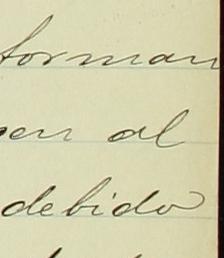 forman
en al
debido